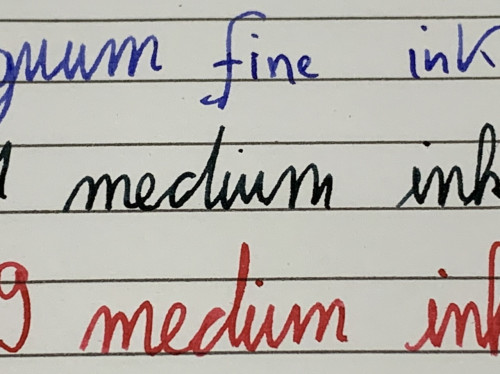 fine ink
medium ink
9 medium ink